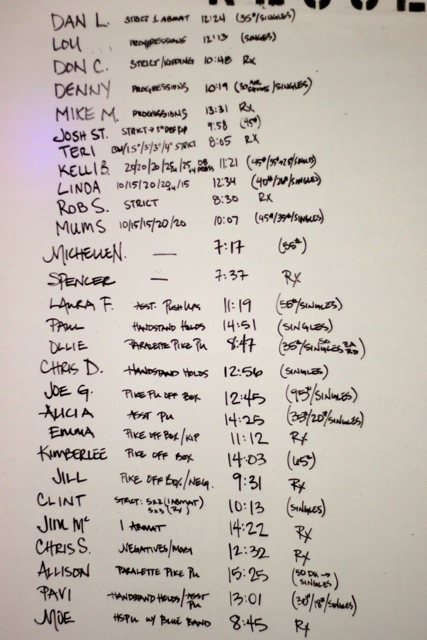 DAN L. STRICT 1 ABMAT 12:24 (35#/SINGLES)
LOU PROGRESSIONS 12:13 (SINGLES)
DON C. STRICT/KIPPING 10:48 Rx
DENNY PROGRESSIONS 10:19 (30 /SINGLES)
MIKE M. PROGRESSIONS 13:31 Rx
JOSH ST. STRICT → 5" DEF DP 9:58 (95#)
TERI 1.5"/3"/4" STRICT 8:05 Rx
KELLI B. 20/20/20 11:21
LINDA 10/15/20 /15 12:34
ROB S. STRICT 8:30 Rx
MUMS 10/15/15/20/20 10:07 (45#/35#/SINGLES)
MICHELLE N. — 7:17 (55#)
SPENCER — 7:37 Rx
LAURA F. ASST. PUSH UPS 11:19 (55#/SINGLES)
PAUL HANDSTAND HOLDS 14:51 (SINGLES)
OLLIE PARALETTE PIKE PU 8:47 (35#/SINGLES
CHRIS D. HANDSTAND HOLDS 12:56 (SINGLES)
JOE G. PIKE PU OFF BOX 12:45 (95#/SINGLES)
ALICIA ASST PU 14:25 (33#/20#/SINGLES)
EMMA PIKE OFF BOX/KIP 11:12 Rx
KIMBERLEE PIKE OFF BOX 14:03 (65#)
JILL PIKE OFF BOX/NEG. 9:31 Rx
CLINT STRICT: 5x2 (1 ABMAT) 5x3 (Rx) 10:13 (SINGLES)
JIM Mc 1 ABMAT 14:22 Rx
CHRIS S. NEGATIVES/ 12:32 Rx
ALLISON PARALETTE PIKE PU 15:25 (50 DU → SINGLES)
PAVI HANDSTAND HOLDS/ASST PU 13:01 (30#/18#/SINGLES)
MOE HSPU W/ BLUE BAND 8:45 Rx